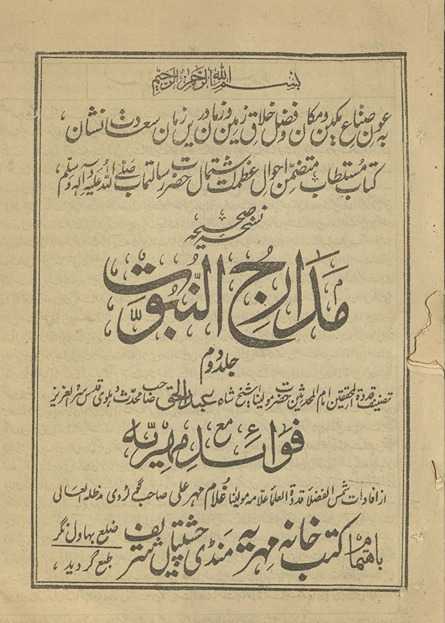 بسم اللہ الرحمن الرحیم
بہ عون صناع مکین و مکان و فضل خلاق زمین و زماں درین زمان سعادت نشان،
کتاب مستطاب متضمن احوال عظمت اشتمال حضرت رسالتمآب صلے اللہ علیہ وآلہ وسلم،
نسخہ صحیحہ
مَدَارِجُ النُّبُوَّت
جلد دوم
تصنیف قدوۃ المحققین امام المحدثین حضرت مولینا شیخ شاہ عبدالحق صاحب محدث دہلوی قدس سرہ العزیز
مع
فوائد مہریہ
از افادات شمس الفضلا قدوۃ العلما علامہ مولینا غلام مہر علی صاحب گولڑوی مدظلہ العالی
باہتمام کتب خانہ مہریہ منڈی چشتیاں شریف ضلع بہاول نگر
طبع گردید،